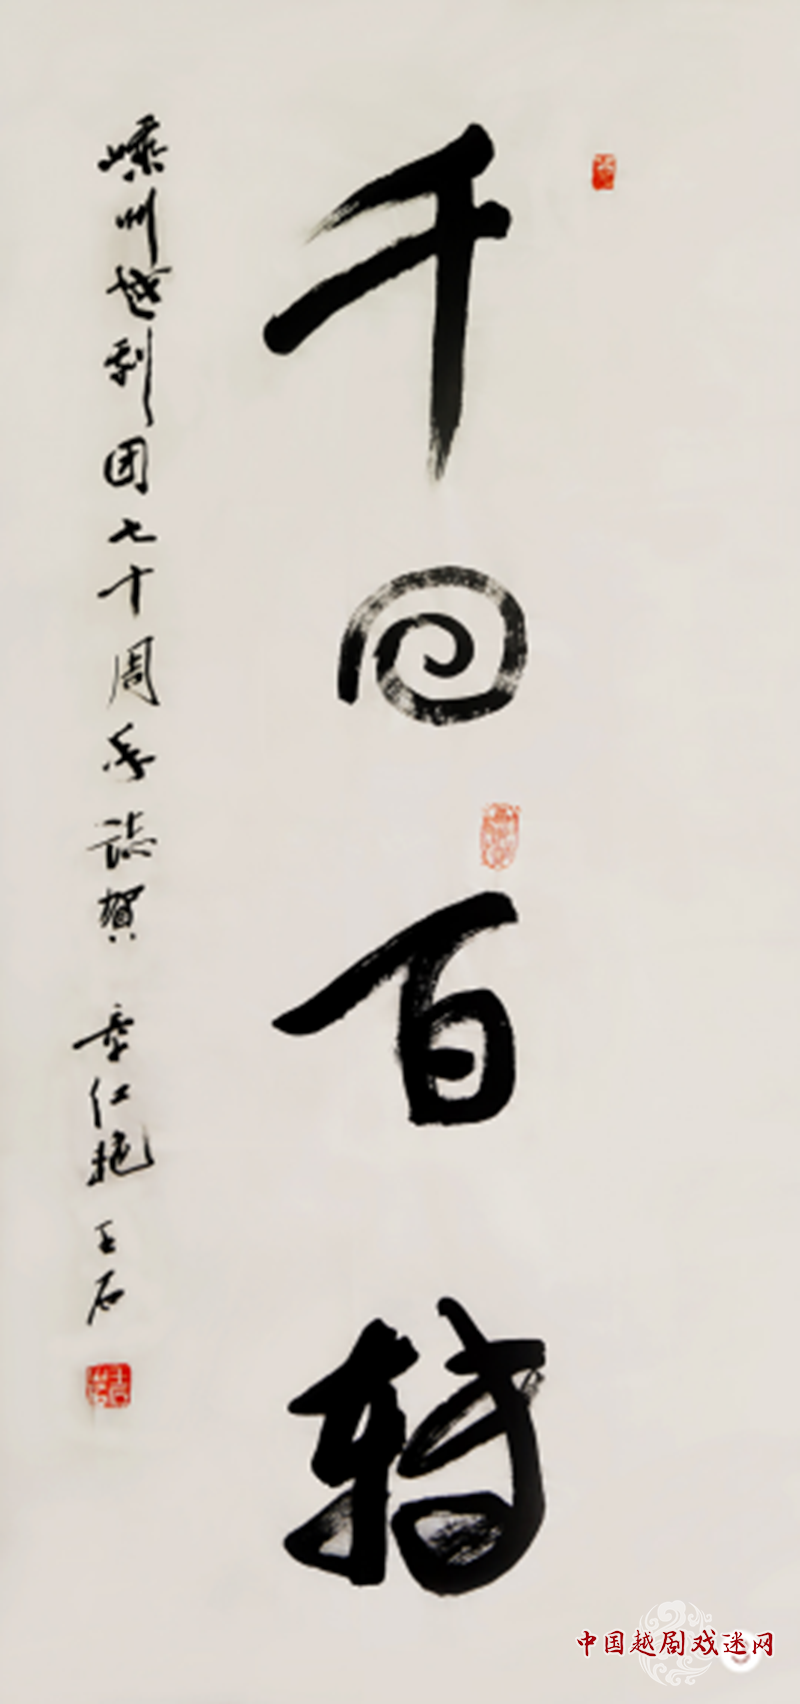 千回百转
嵊州越剧团七十周年誌賀 章仁艳 王石
中国越剧戏迷网